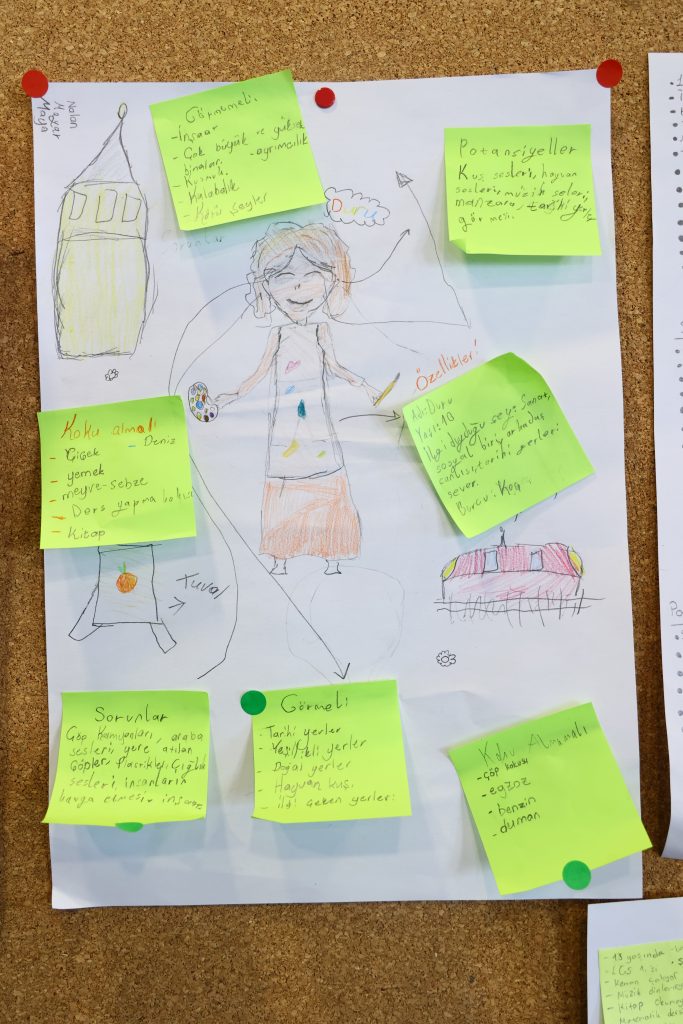 Nalan
Hazar
Maya
Görmemeli
-İnşaat
- Çok büyük ve yüksek
binalar. - ayrımcılık
- Kusmuk.
- Kalabalık
- Kötü Şeyler
Duru
Potansiyeller
Kuş sesleri, hayvan
sesleri, müzik seleri,
manzara, tarihi
görmesi.
Özellikleri
Adı: Duru
Yaşı: 10
İlgi duyduğu şey: Sanat,
sosyal biri, arkadaş
canlısı, tarihi yerleri
sever.
Burcu: Koç
Koku almalı
- Çiçek - Deniz
- yemek
- meyve-sebze
- Ders yapma
- Kitap
Tuval
Sorunlar
Çöp Kamyonları, araba
sesleri, yere atılan
Çöpler, Çığlık
sesleri, insanların
Görmeli
- Tarihi yerler
- Yeşillikli yerler
- Doğal yerler
- Hayvan kuş.
- İlgi çeken yerleri
Koku Almamalı
- Çöp kokusu
- egzoz
- benzin
- duman
- 13 yaşında
- LGS
- Müzik
- Kitap